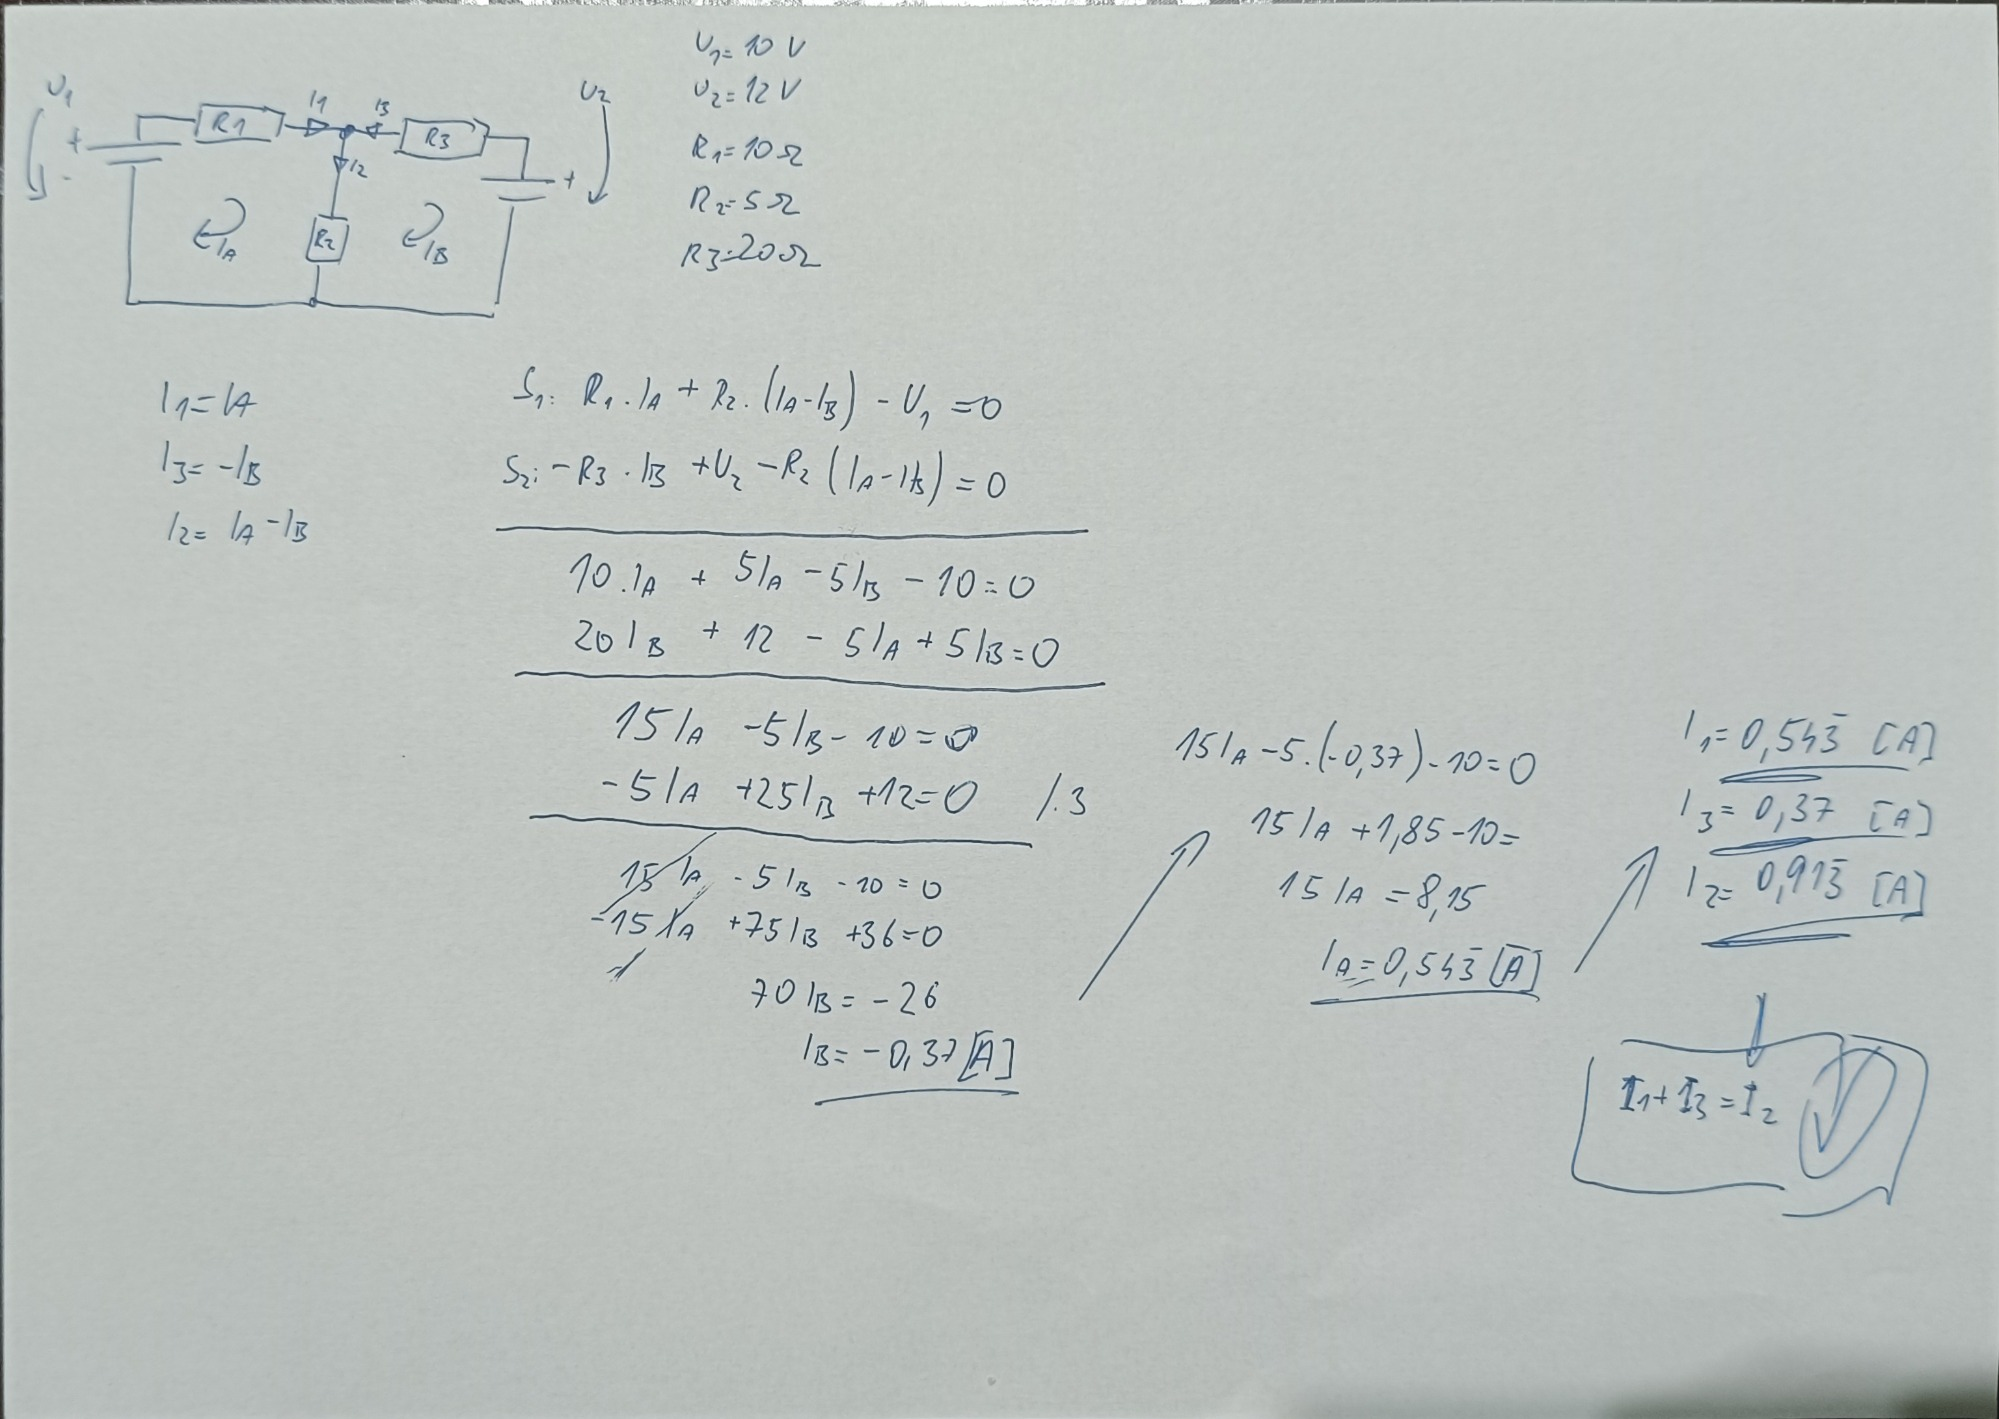 U1
+
-
R1
I1
I3
R3
U2
+
I2
IA
R2
IB
U1= 10 V
U2= 12 V
R1= 10 Ω
R2= 5 Ω
R3= 20 Ω
I1= IA
I3= -IB
I2= IA - IB
S1: R1 . IA + R2 . (IA - IB) - U1 = 0
S2: - R3 . IB + U2 - R2 (IA - IB) = 0
10 . IA + 5IA - 5IB - 10 = 0
20 IB + 12 - 5IA + 5IB = 0
15IA - 5IB - 10 = 0
-5IA + 25IB + 12 = 0 /.3
15 IA - 5IB - 10 = 0
-15 IA + 75IB + 36 = 0
70 IB = - 26
IB = - 0,37 [A]
15IA - 5.(-0,37) - 10 = 0
15IA + 1,85 - 10 =
15 IA = 8,15
IA = 0,543̄ [A]
I1 = 0,543̄ [A]
I3 = 0,37 [A]
I2 = 0,913̄ [A]
I1 + I3 = I2 ✓